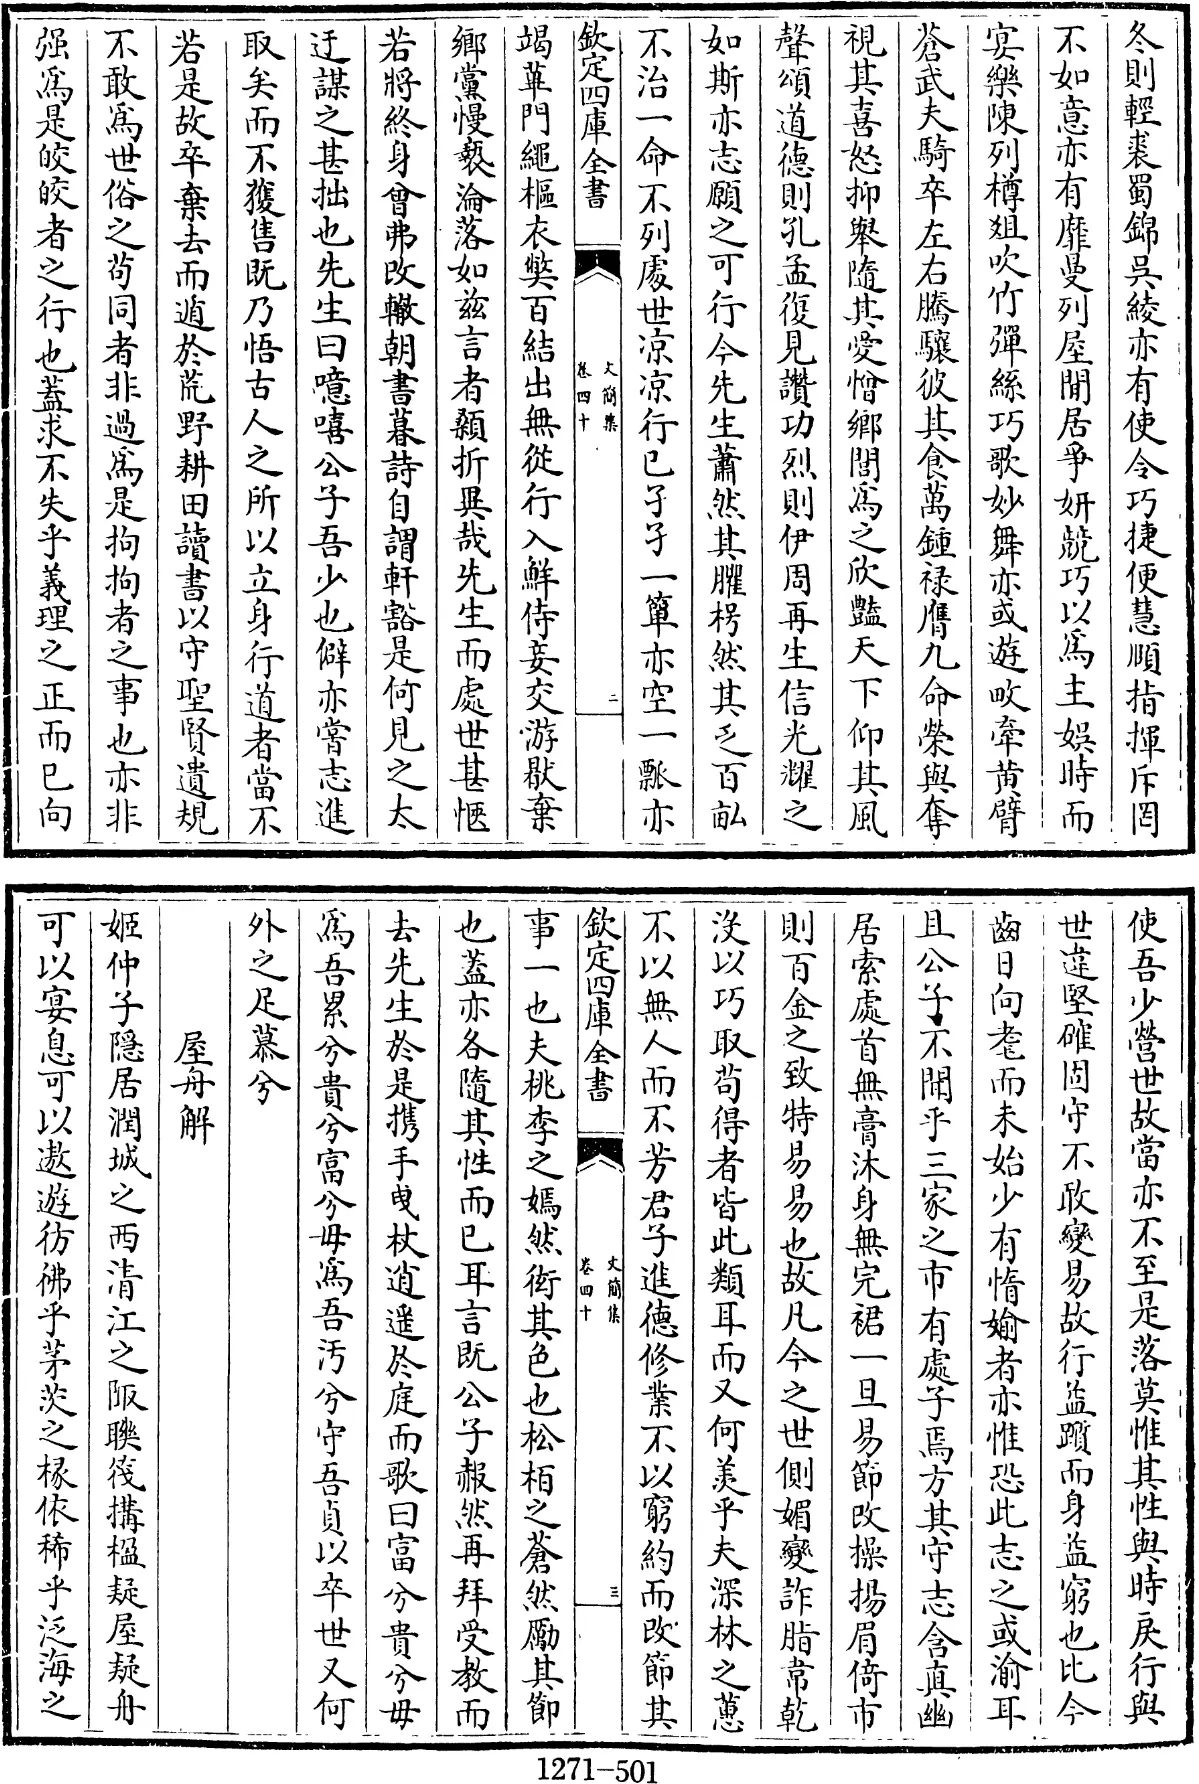 冬則輕裘蜀錦吳綾亦有使令巧捷便慧順指揮斥罔
不如意亦有靡曼列屋閒居爭妍競巧以爲主娛時而
宴樂陳列樽俎吹竹彈絲巧歌妙舞亦或遊畋牽黄臂
蒼武夫騎卒左右騰驤彼其食萬鍾祿膺九命榮與奪
視其喜怒抑舉隨其愛憎鄉閭爲之欣豔天下仰其風
聲頌道德則孔孟復見讚功烈則伊周再生信光耀之
如斯亦志願之可行今先生蕭然其臞枵然其乏百畝
不治一命不列處世凉凉行已孑孑一簞亦空一瓢亦
欽定四庫全書
文簡集
卷四十
二
竭蓽門繩樞衣獘百結出無從行入鮮侍妾交游厭棄
鄉黨慢褻淪落如兹言者顙折異哉先生而處世甚愜
若將終身曾弗改轍朝書暮詩自謂軒豁是何見之太
迂謀之甚拙也先生曰噫嘻公子吾少也僻亦嘗志進
取矣而不獲售既乃悟古人之所以立身行道者當不
若是故卒棄去而遁於荒野耕田讀書以守聖賢遺規
不敢爲世俗之苟同者非過爲是拘拘者之事也亦非
强爲是皎皎者之行也蓋求不失乎義理之正而已向
使吾少營世故當亦不至是落莫惟其性與時戾行與
世違堅確固守不敢變易故行益躓而身益窮也比今
齒日向耄而未始少有惰媮者亦惟恐此志之或渝耳
且公子不聞乎三家之市有處子焉方其守志含真幽
居索處首無膏沐身無完裙一旦易節改操揚眉倚市
則百金之致特易易也故凡今之世側媚變詐脂韋乾
沒以巧取苟得者皆此類耳而又何羡乎夫深林之蕙
不以無人而不芳君子進德修業不以窮約而改節其
欽定四庫全書
文簡集
卷四十
三
事一也夫桃李之嫣然衒其色也松柏之蒼然勵其節
也蓋亦各隨其性而已耳言既公子赧然再拜受教而
去先生於是携手曳杖逍遥於庭而歌曰富兮貴兮毋
爲吾累兮貴兮富兮毋爲吾汚兮守吾貞以卒世又何
外之足慕兮
屋舟解
姬仲子隱居潤城之西清江之阪聯筏搆楹疑屋疑舟
可以宴息可以遨遊彷彿乎茅茨之椽依稀乎泛海之
1271-501